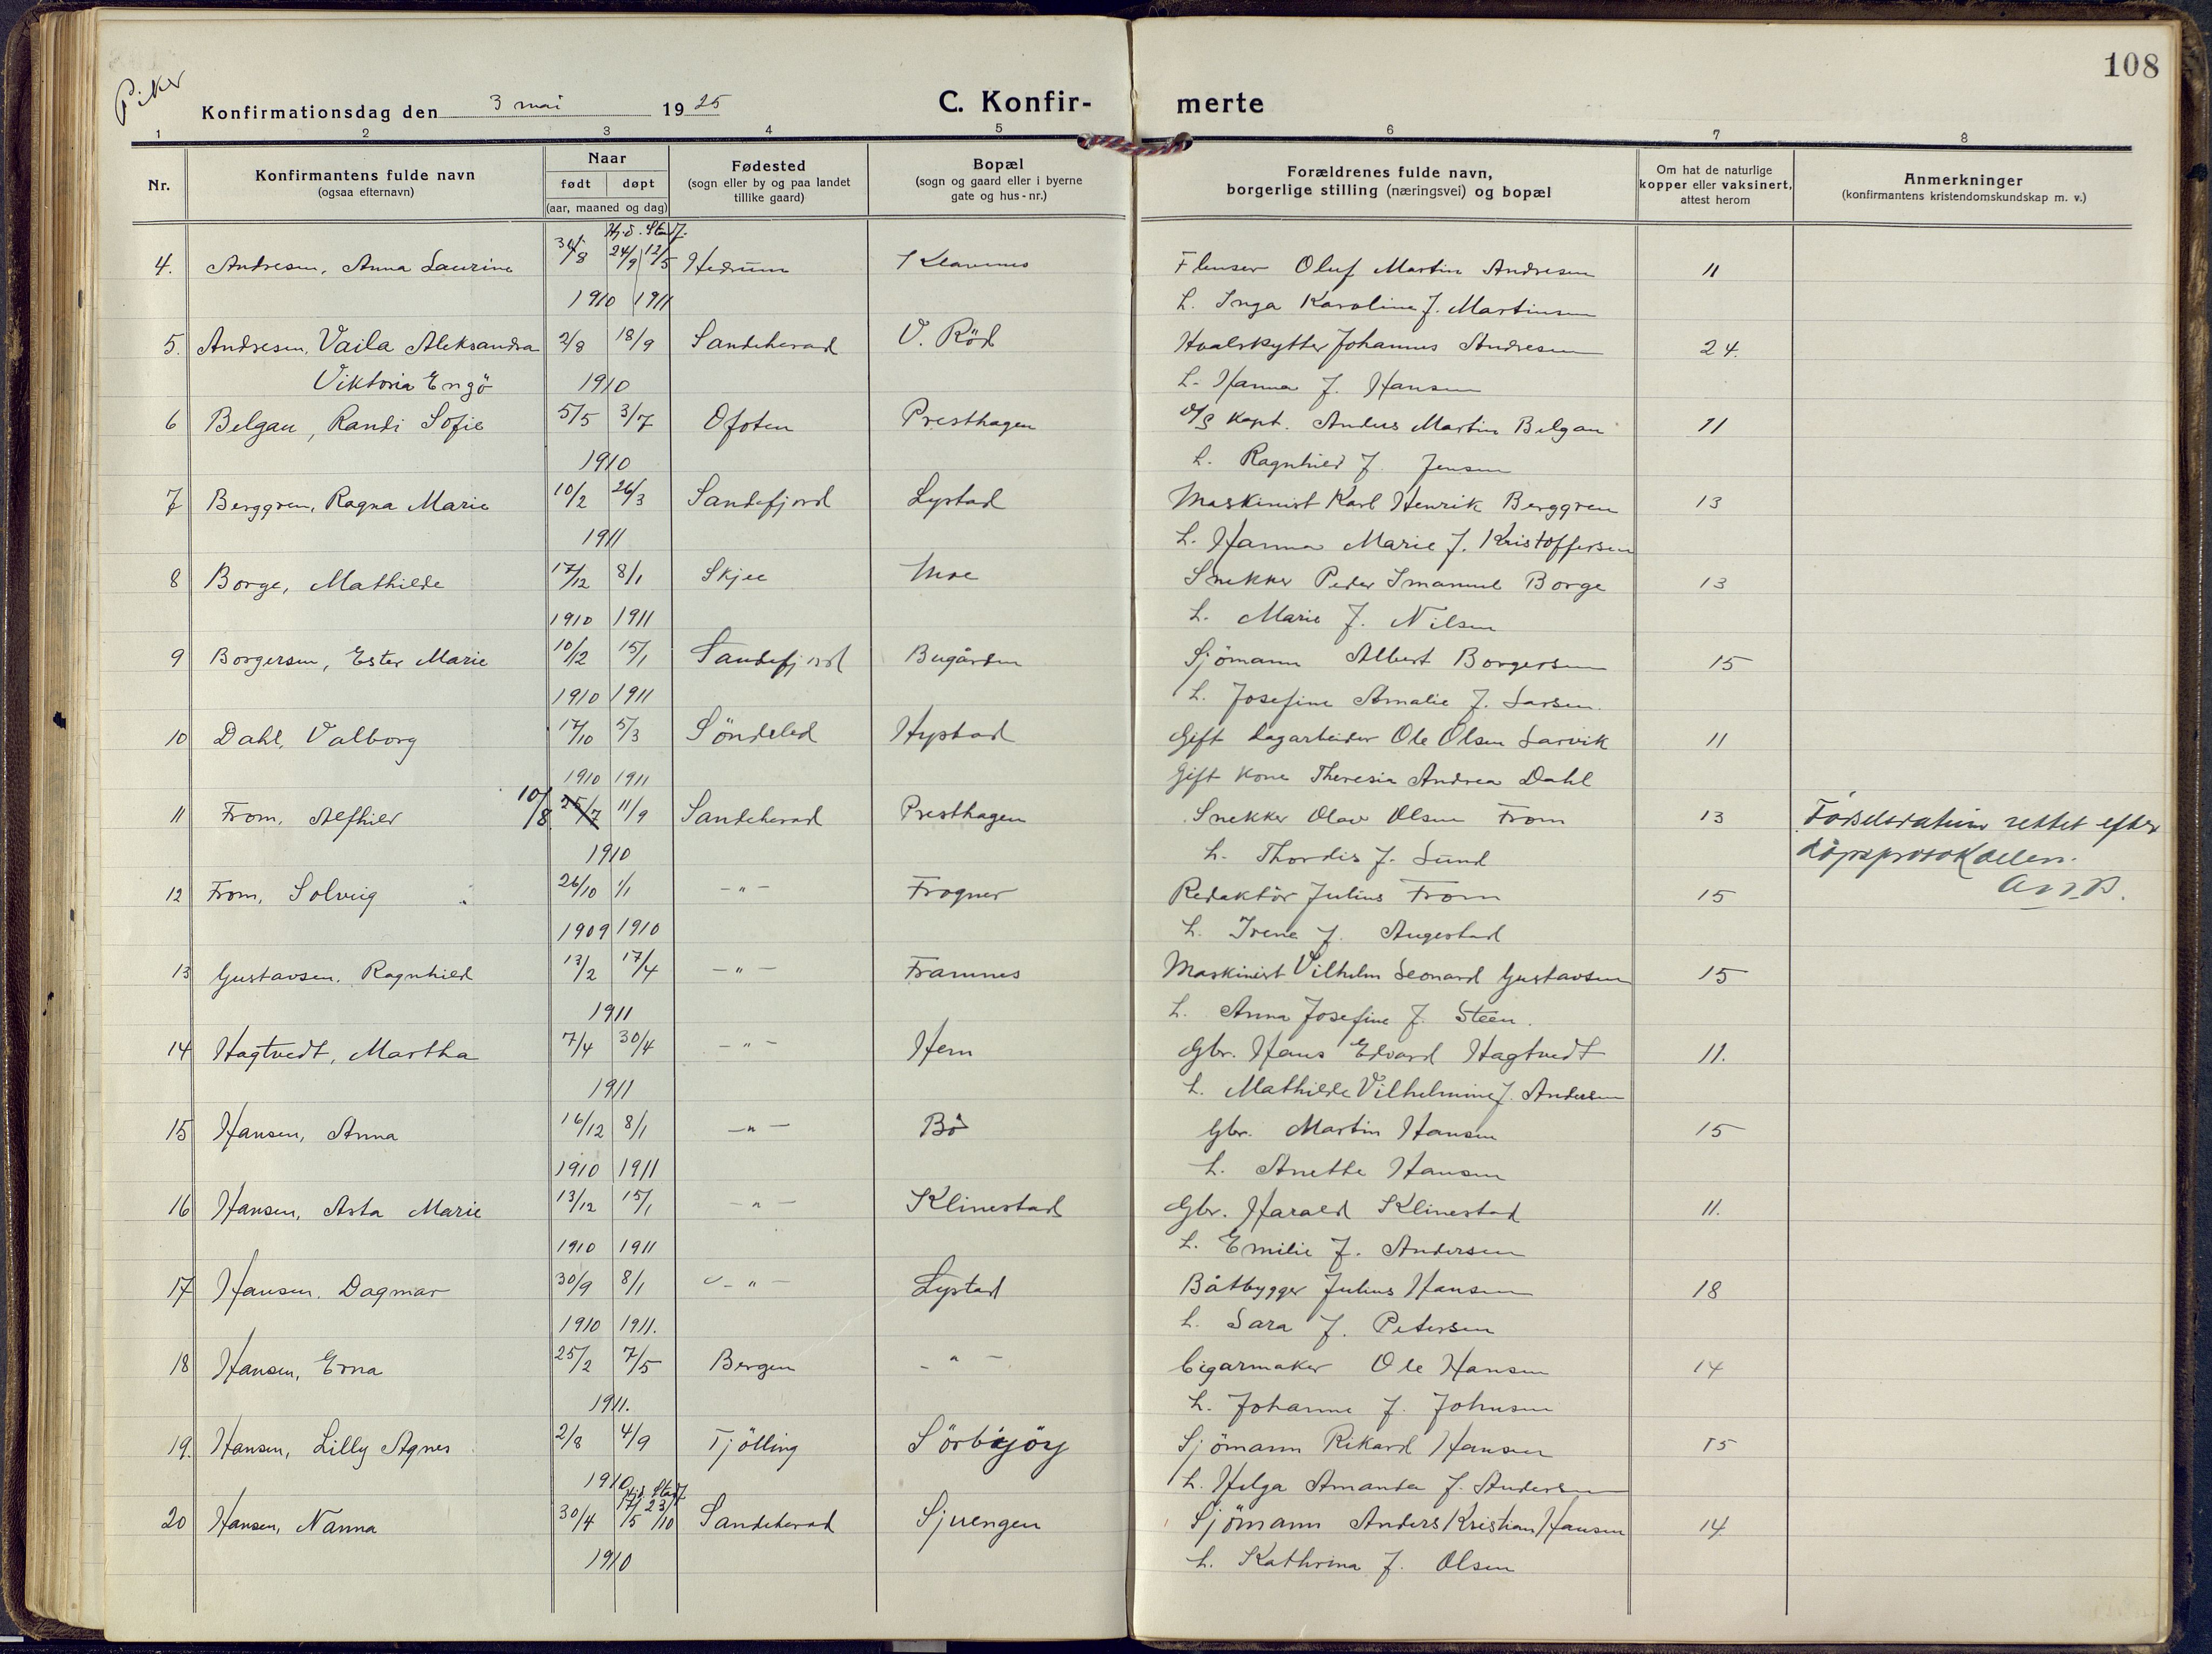 108
Piker
Konfirmationsdag den 3 mai 1925 C. Konfir- merte
1 2 3 4 5 6 7 8
Nr. Konfirmantens fulde navn (ogsaa efternavn) Naar født døpt (aar, maaned og dag) Fødested (sogn eller by og paa landet tillike gaard) Bopæl (sogn og gaard eller i byerne gate og hus-nr.) Forældrenes fulde navn, borgerlige stilling (næringsvei) og bopæl Om hat de naturlige kopper eller vaksinert, attest herom Anmerkninger (konfirmantens kristendomskundskap m. v.)
Hj.d. Stadf.
4. Andresen, Anna Laurine 30/8 24/9 12/5 Hedrum Klavenes Flenser Oluf Martin Andresen 11
1910 1911 h. Inga Karoline f. Martinsen
5. Andresen, Vaila Aleksandra 2/8 18/9 Sandeherad V. Röd Hvalskytter Johannes Andresen 24.
Viktoria Engö 1910 h. Hanna f. Hansen
6 Belgau, Randi Sofie 5/5 3/7 Ofoten Presthagen D/S kapt. Anders Martin Belgau 11
1910 h. Ragnhild f. Jensen
7 Berggren, Ragna Marie 10/2 26/3 Sandefjord Lystad Maskinist Karl Henrik Berggren 13
1911 h. Hanna Marie f. Kristoffersen
8 Borge, Mathilde 17/12 8/1 Skjee Moe Snekker Peder Imanuel Borge 13
1910 1911 h. Marie f. Nilsen
9 Borgersen, Ester Marie 10/2 15/1 Sandefjord Bugården Sjömann Albert Borgersen 15
1910 1911 h. Josefine Amalie f. Larsen.
10 Dahl, Valborg 17/10 5/3 Söndeled Hystad Gift dagarbeider Ole Olsen Larvik 11
1910 1911 Gift kone Theresia Andrea Dahl
11 From, Alfhild 10/8 25/7 11/9 Sandeherad Presthagen Snekker Olav Olsen From 13 Födselsdatum rettet efter
1910 h. Thordis f. Lund döpsprotokollen.
12 From, Solveig 26/10 1/1 -"- Frogner Redaktör Julius From 15
1909 1910 h. Irene f. Augestad
13 Gustavsen, Ragnhild 13/2 17/4 -"- Framnes Maskinist Vilhelm Leonard Gustavsen 15
1911 h. Anna Josefine f. Steen.
14 Hagtvedt, Martha 7/4 30/4 -"- Hem Gbr. Hans Edvard Hagtvedt 11.
1911 h. Mathilde Vilhelmine f. Andersen
15 Hansen, Anna 16/12 8/1 -"- Bö Gbr. Martin Hansen 15
1910 1911 h. Anette Hansen
16 Hansen, Asta Marie 13/12 15/1 -"- Klinestad Gbr. Harald Klinestad 11.
1910 1911 h. Emilie f. Andersen
17 Hansen, Dagmar 30/9 8/1 -"- Lystad Båtbygger Julius Hansen 18
1910 1911. h. Sara f. Petersen
18 Hansen, Erna 25/2 7/5 Bergen -"- Cigarmaker Ole Hansen 14
1911. h. Johanne f. Johnsen
19. Hansen, Lilly Agnes 2/8 4/9 Tjölling Sörbyöy Sjömann Rikard Hansen 15
1910 h. Helga Amanda f. Andersen
Hjd. Stadf.
20 Hansen, Nanna 30/4 17/5 23/10 Sandeherad Sjuengen Sjömann Anders Kristian Hansen 14
1910 h. Kathrina f. Olsen